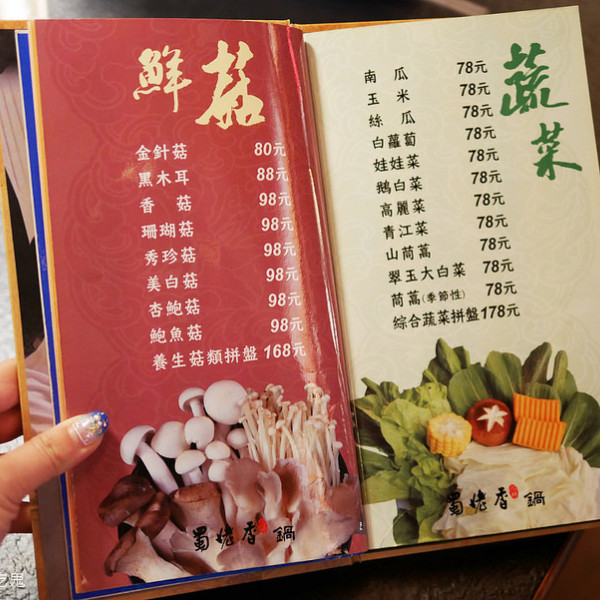 鮮菇
金針菇 80元
黑木耳 88元
香菇 98元
珊瑚菇 98元
秀珍菇 98元
美白菇 98元
杏鮑菇 98元
鮑魚菇 98元
養生菇類拼盤 168元
蜀姥香鍋
蔬菜
南瓜 78元
玉米 78元
絲瓜 78元
白蘿蔔 78元
娃娃菜 78元
鵝白菜 78元
高麗菜 78元
青江菜 78元
山茼蒿 78元
翠玉大白菜 78元
茼蒿(季節性) 78元
綜合蔬菜拼盤178元
蜀姥香鍋